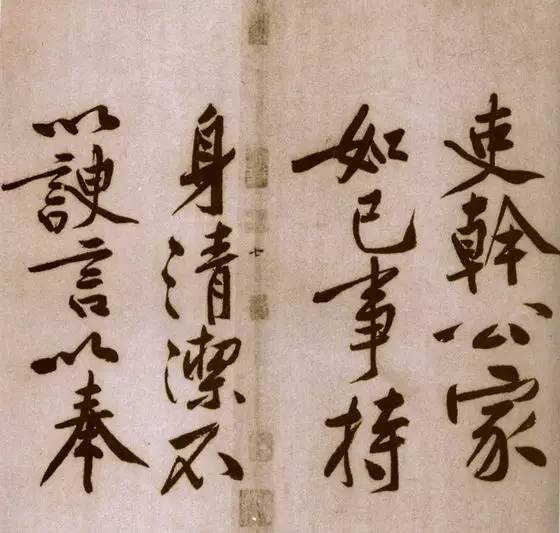 吏幹公家
如己事持
七
身清潔不
以諛言以奉